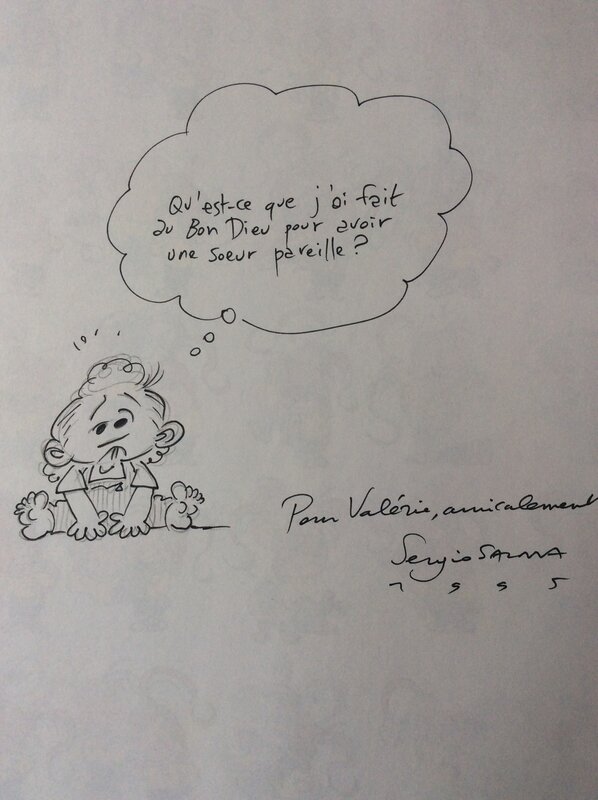 Qu'est-ce que j'ai fait
au Bon Dieu pour avoir
une soeur pareille ?
Pour Valérie, amicalement
Sergio SALMA
1995